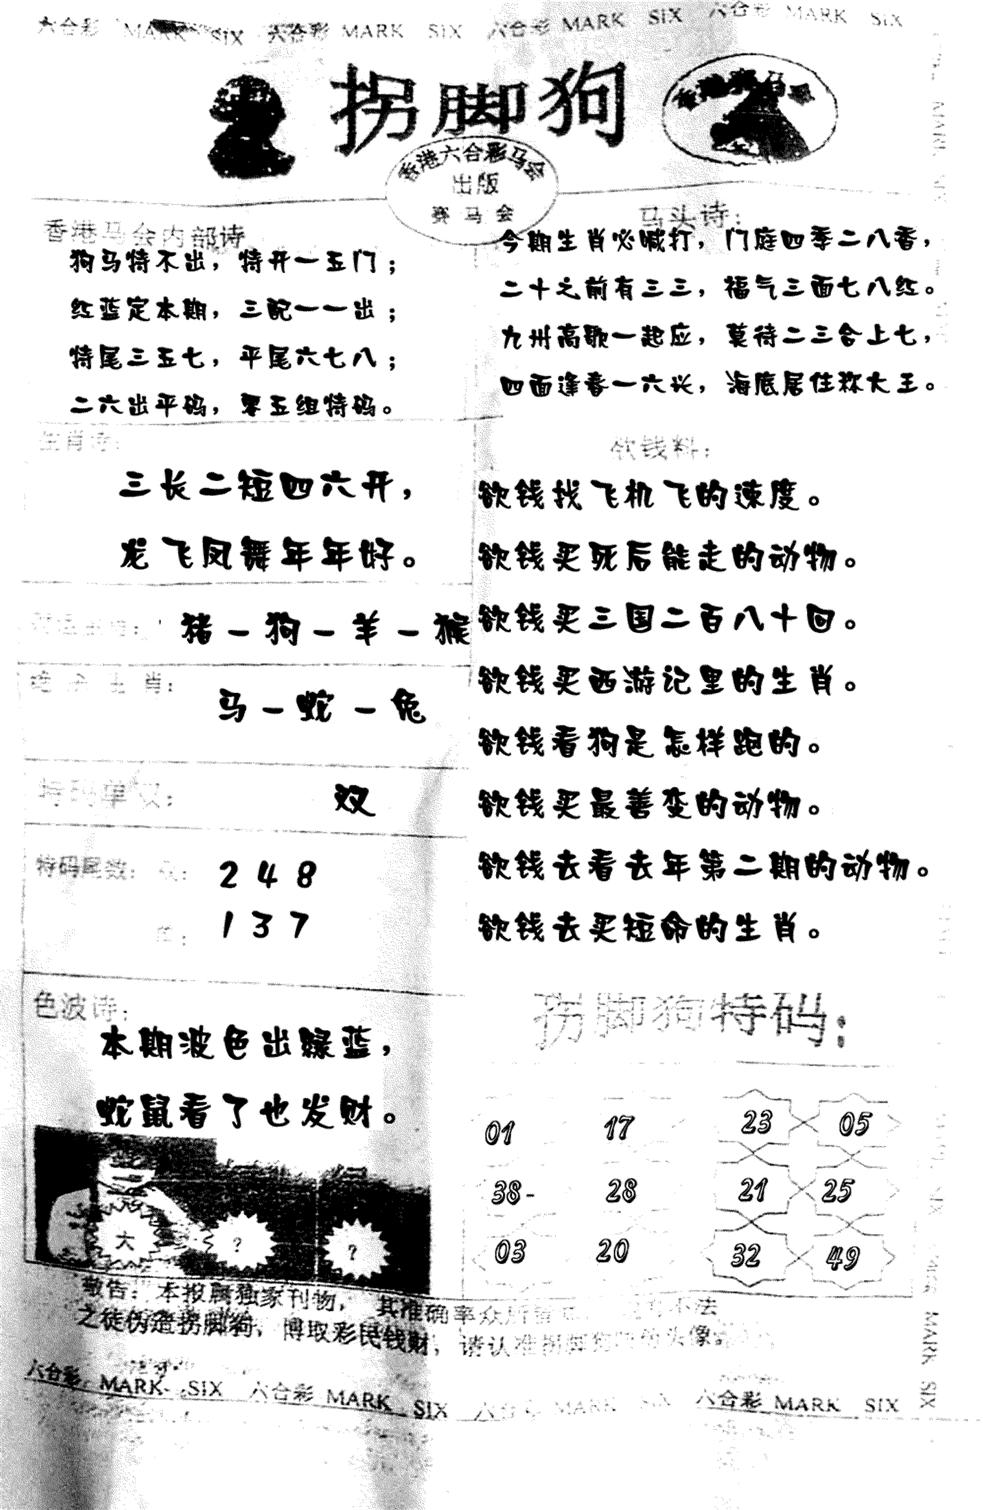 六合彩 MARK SIX 六合彩 MARK SIX 六合彩 MARK SIX 六合彩 MARK SIX
拐脚狗
香港赛马
香港六合彩马会
出版
赛马会
香港马会内部诗
狗马特不出，特开一五门；
红蓝定本期，三配一一出；
特尾三五七，平尾六七八；
二六出平码，零五组特码。
马头诗：
今期生肖必喊打，门庭四季二八香，
二十之前有三三，福气三面七八红。
九州高歌一起应，莫待二三合上七，
四面逢春一六兴，海底居住称大王。
生肖诗：
三长二短四六开，
龙飞凤舞年年好。
猪－狗－羊－猴
绝杀生肖：
马－蛇－兔
特码单双：
双
特码尾数：双：
2 4 8
单：
1 3 7
欲钱料：
欲钱找飞机飞的速度。
欲钱买死后能走的动物。
欲钱买三国二百八十回。
欲钱买西游记里的生肖。
欲钱看狗是怎样跑的。
欲钱买最善变的动物。
欲钱去看去年第二期的动物。
欲钱去买短命的生肖。
色波诗：
本期波色出绿蓝，
蛇鼠看了也发财。
大 ? ?
拐脚狗特码：
01 17 23 05
38- 28 21 25
03 20 32 49
敬告：本报属独家刊物，其准确率众所 不法
之徒伪造拐脚狗，博取彩民钱财，请认准拐脚狗 头像
六合彩 MARK SIX 六合彩 MARK SIX 六合彩 MARK SIX 六合彩 MARK SIX
MARK SIX
MARK SIX